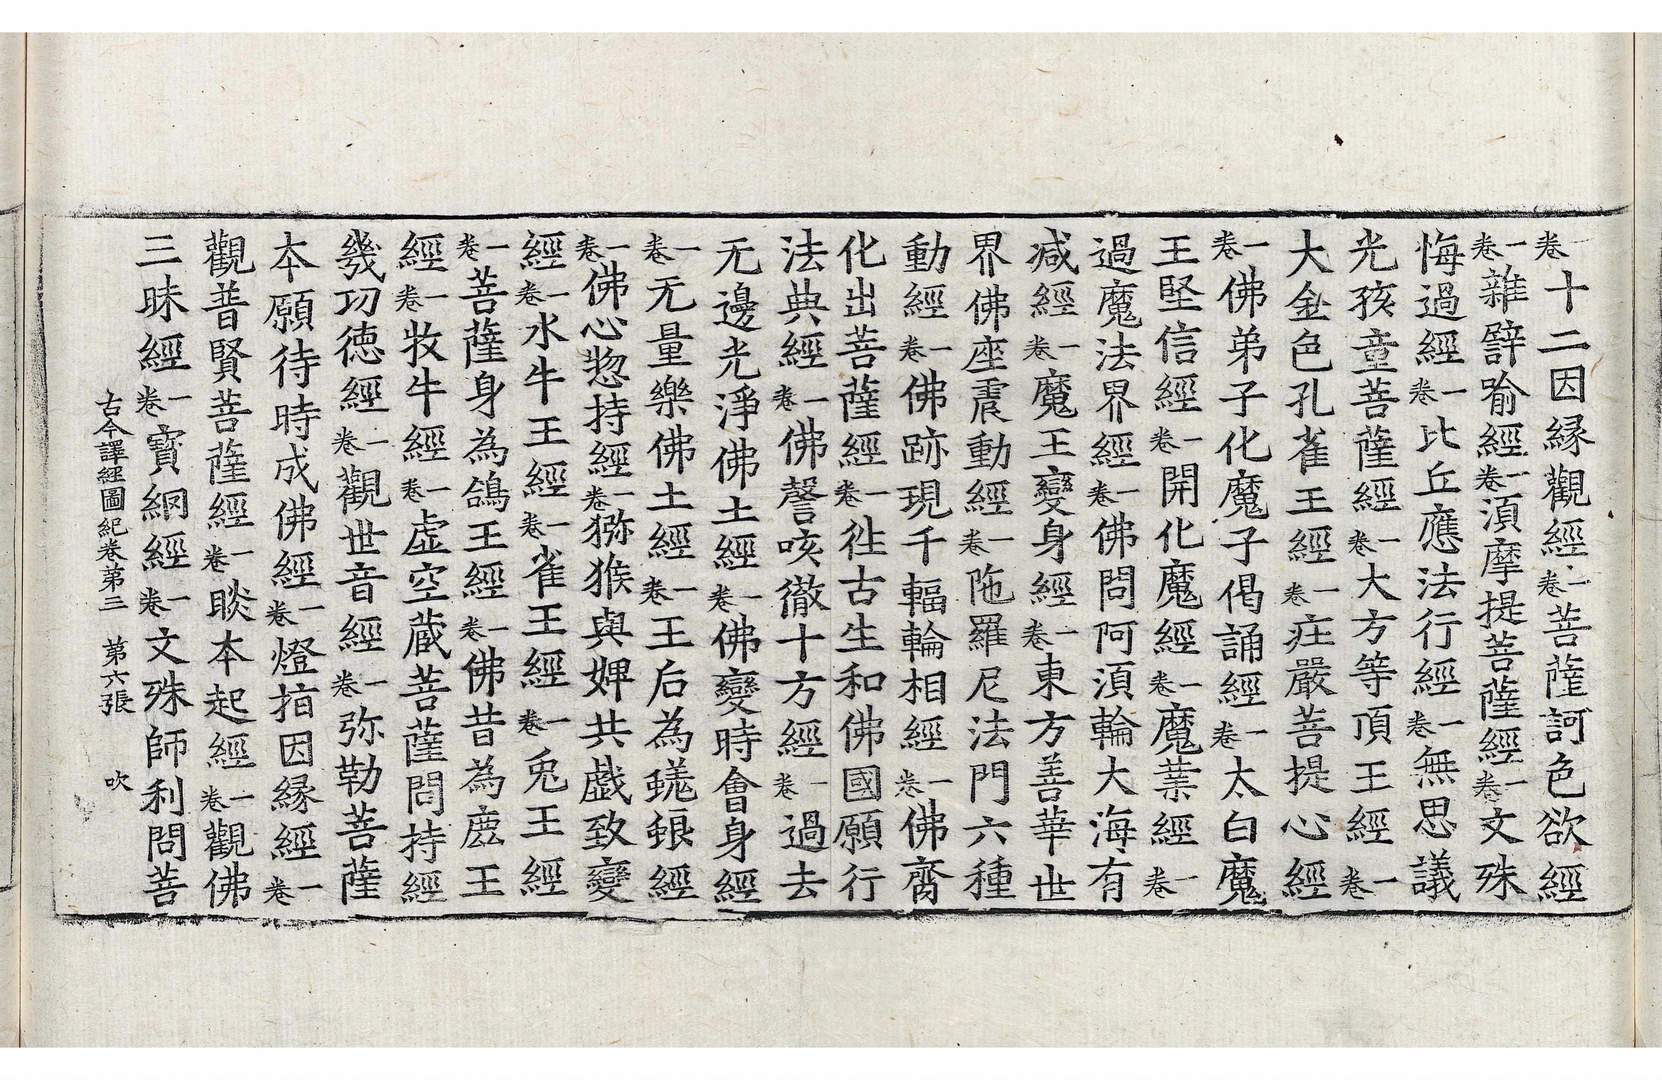 一卷十二因縁觀經一卷菩薩訶色欲經
一卷雜譬喻經一卷湏摩提菩薩經一卷文殊
悔過經一卷比丘應法行經一卷無思議
光孩童菩薩經一卷大方等頂王經一卷
大金色孔雀王經一卷庄嚴菩提心經
一卷佛弟子化魔子偈誦經一卷太白魔
王堅信經一卷開化魔經一卷魔業經一卷
過魔法界經一卷佛問阿湏輪大海有
减經一卷魔王變身經一卷東方善華世
界佛座震動經一卷陁羅尼法門六種
動經一卷佛跡現千輻輪相經一卷佛齎
化出菩薩經一卷徃古生和佛國願行
法典經一卷佛謦咳徹十方經一卷過去
无邊光淨佛土經一卷佛變時會身經
一卷无量樂佛土經一卷王后為蜣蜋經
一卷佛心惣持經一卷猕猴與婢共戯致變
經一卷水牛王經一卷雀王經一卷兎王經
一卷菩薩身為鴿王經一卷佛昔為鹿王
經一卷牧牛經一卷虛空蔵菩薩問持經
㡬功徳經一卷觀世音經一卷弥勒菩薩
本願待時成佛經一卷燈指因縁經一卷
觀普賢菩薩經一卷睒本起經一卷觀佛
三昧經一卷寳網經一卷文殊師利問菩
古今譯經圖紀卷第三 第六張 吹